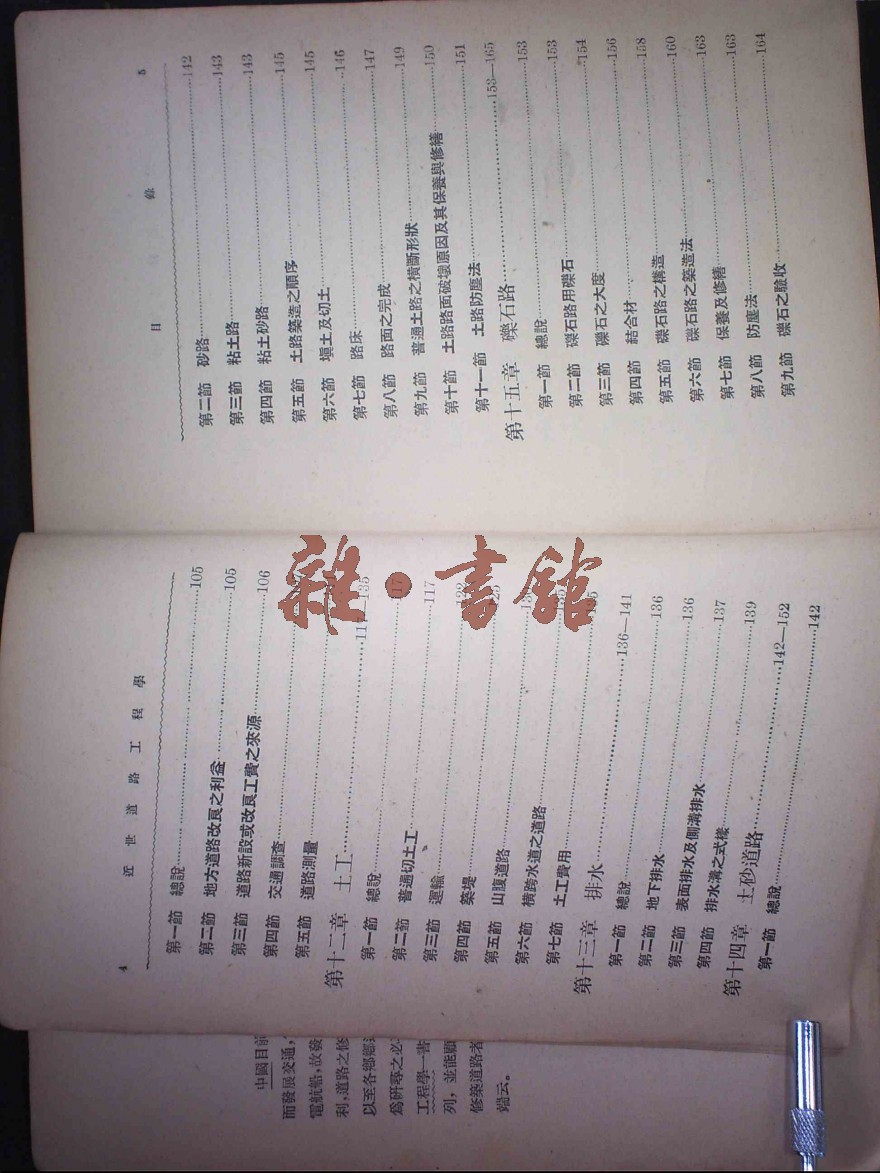 4 近世道路工程學
第一節 總說……105
第二節 地方道路改良之利益……105
第三節 道路新設或改良工費之來源……106
第四節 交通調查
第五節 道路測量
第十二章 土工
第一節 總說
第二節 普通切土工
第三節 運輸……117
第四節 築堤
第五節 山腹道路
第六節 橫跨水道之道路
第七節 土工費用
第十三章 排水……136—141
第一節 總說……136
第二節 地下排水……136
第三節 表面排水及側溝排水……137
第四節 排水溝之式樣……139
第十四章 土砂道路……142—152
第一節 總說……142
目錄 5
第二節 砂路……142
第三節 粘土路……143
第四節 粘土砂路……143
第五節 土路築造之順序……145
第六節 塡土及切土……145
第七節 路床……146
第八節 路面之完成……147
第九節 普通土路之橫斷形狀……149
第十節 土路路面破壞原因及其保養與修繕……150
第十一節 土路防塵法……151
第十五章 礫石路……153—165
第一節 總說……153
第二節 礫石路用礫石……153
第三節 礫石之大度……154
第四節 結合材……156
第五節 礫石路之構造……158
第六節 礫石路之築造法……160
第七節 保養及修繕……163
第八節 防塵法……163
第九節 礫石之驗收……164
中國目前
而發展交通，
電航船，故發
利，道路之修
以至各鄉鄉
爲研尋之必
工程學一書
列，並能顧
修築道路者
端云。
書館